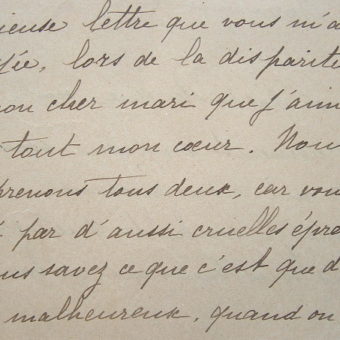 ieuse lettre que vous m'a
ée, lors de la disparit
on cher mari que j'aim
tout mon cœur. Nou
prenons tous deux, car vou
par d'aussi cruelles épre
us savez ce que c'est que d
malheureux, quand on